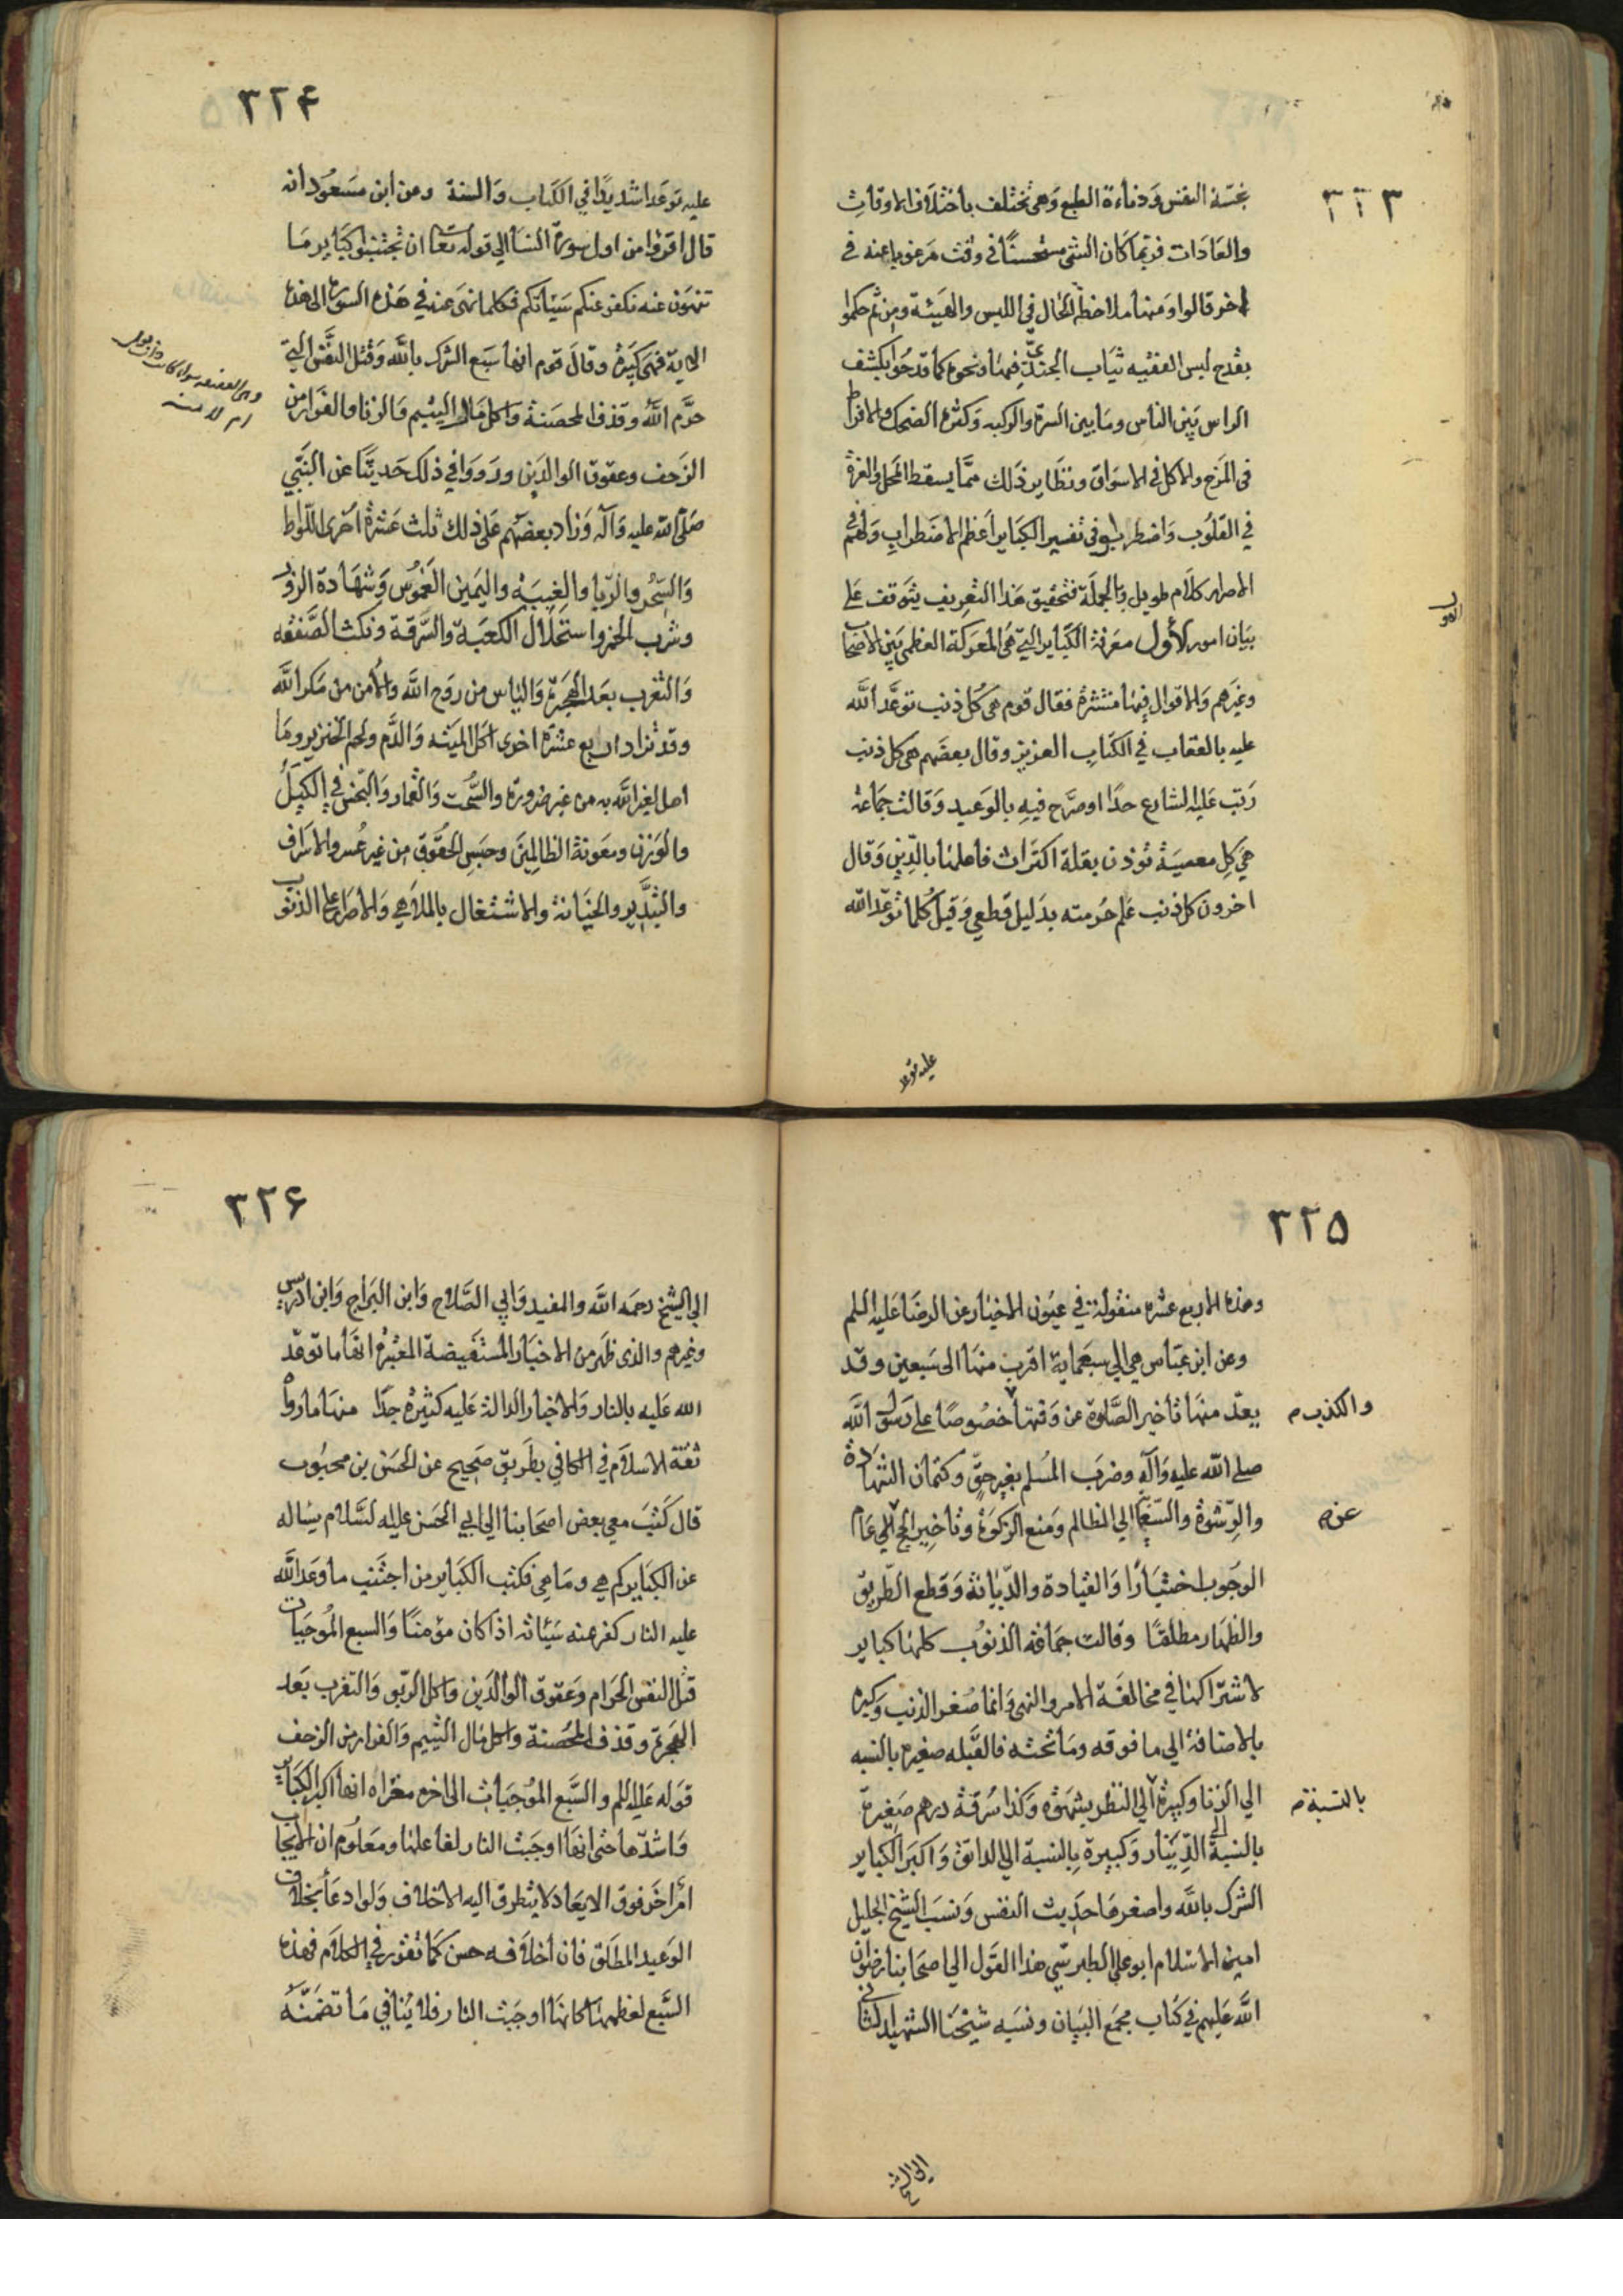 ٣٢٣
بخسّة النفس وَدناءة الطبع وَهى تختلف بأختلاف الاوقاتِ
والعَادات فربّما كان الشئ مستحسنًا في وقت مَرغوباعنه فى
اخر قالوا وَمنها ملاحظة الحال في اللبس والهَيئة ومن ثم حكموا
بقدح لبس الفقيه ثيَاب الجنديّ فيها ونحوه كما قدحُوا بكشف
الراس بَين الناس ومَا بين السرّة والركبه وَكثرة الضحك والافراط
فى المَزح والاكل في الاسوَاق ونظَاير ذلك ممّا يسقط المحلّ والعزة
في القلوُب وَاضطربوا في تفسير الكبَاير اَعظم الاضطرابِ وَلهم في
الاصرار كلَام طويل وَبالجملة فتحقيق هَذا التعرِيف يتَوقف عَلى
بيَان امور الأول معَرفة الكبَاير التي هى المَعركة العظمى بَين الاصحاب
وغيرَهم وَالاقوال فيها منتشرة فقال قوم هى كُل ذنب توعّد اللَّه
عليه بالعقاب في الكتَابِ العزيز وقال بعضَهم هى كل ذنب
رَتب عَليه الشارع حدًا اوصَرّح فيهِ بالوَعيد وَقالت جَماعة
هي كل معصيَة تؤذن بقلة اكترَاث فاعلها بالدّين وَقال
اخرون كل ذنب عَلم حُرمته بدَليل قطعي وَقيل كُلما توعّد اللّه
عليه توعد
٣٢۴
عليه توَعدا شديدًا في الكتَاب وَالسنة وعن ابن مسَعُود انه
قال اقرؤا من اول سورة النسَآ الي قوله تعَا ان تجتنبوا كبَاير مَا
تنهَون عنه نكفر عنكم سَيئاتكم فكلما نهىَ عنه في هَذه السورة الى هذه
الاية فهىَ كبَيرة وقالَ قوم انها سَبع الشرك باللَّه وَقتل النفَّس التى
حرَّم اللَّه وقذف المحصَنة وَاكل مَال اليتيم وَالزنا والفرَار من
الزَحف وعقوق الوالدَين ورَووَا في ذلك حَديثًا عن النبّي
صَلّى الله عليه وَآله وَزاد بعضهُم عَلى ذلك ثلث عَشرة اخُرى اللّواط
وَالسّحُر وَالرّبا والغِيبَة واليَمين الغَموُس وَشهَادة الزور
وشرب الخمر واستحلَال الكعبَة وَالسَّرقة ونكث الصَّفقه
وَالتعرب بعَد الهجَرة وَاليَاس من رَوح اللَّه وَالأمن من مَكر اللَّه
وقد تزاد اربع عشرة اخرى اكَل الميَته وَالدَّم ولحم الخنزير ومَا
اهل لغير اللَّه به من غير ضرورة والسُّحت وَالقمار وَالبخس في الكيلُ
والوَزن ومعَونة الظالِمينَ وحبَس الحقوُق من غير عُسر والاسَراف
والتبذَير والخيَانة والاشتغال بالملَاهي وَالاصرَار على الذنوب
٣٢٥
وهذه الاربع عشره منقوُلة في عيُون الاخبَار عن الرضَا عَليه السلم
وعن ابن عبَّاس هي الي سبعَماية اقرب منهَا الى سَبعين وقد
يعدّ منهَا تاخير الصَّلوة عن وَقتها خصُوصًا على رسَول اللَّه
والكذب م
صلي اللّه عليه وَآله وضرَب المُسلم بغير حقٍّ وكتمان الشهَادة
والرِّشوَة والسّعَايَة الي الظالم وَمنع الزكوَة وتأخير الحج عَام
عن م
الوجوُب اختيَارًا وَالقيَادة والدّيَاثة وَقطع الطريق
والظهَار مطلقًا وقالت جَماعة الذنوُب كلها كباير
لاشترَاكها في مخالفَة الامر والنهى وَانما صُغر الذنب وكبره
بالاضافة الي ما فوقه ومَا تحته فالقبَله صغيره بالنسبه
الي الزنا وكبيرة الي النظر بشهَوة وَكذا سَرقة درهم صَغيرة
بالنسبة م
بالنسبة الى الدّينَار وَكبيرة بالنسبة الي الدانق وَاكبَر الكباير
الشرك باللَّه واصغرهَا حَديث النفس وَنسَب الشيخ الجليل
امين الاسلام ابو علي الطبرسّي هذا القَول الي اصحَابنا رضوان
اللَّه عَليهم في كتاب مجمَع البيَان ونسَبه شَيخنَا الشهيد الثانى
الى الشيخ
٣٢۶
الي الشيخ رحمَه اللَّه والمفيد وَابي الصَّلاح وَابن البرَاج وَابن ادريس
وغيرهم والذى ظهَر من الاخبَار المُستفَيضة المعتبرَة انها ما توعّد
الله عَليه بالنار وَالاخبار الدالة عَليه كثيرة جدًا منهَا ما رواه
ثقة الاسلَام في الكافي بطَريق صَحيح عن الحَسن بن محبُوب
قال كتَبَ معي بعض اصحَابنا الي ابي الحَسن عليه السَّلام يسَاله
عن الكبَاير كم هي ومَا هي فكتب الكبَاير من اجتَنب ما وَعَد اللَّه
عليه النار كفر عنه سَيئاته اذا كان مؤمنًا وَالسبع المُوجبَات
قتل النفس الحَرام وَعقوق الوالدَين وَاكل الربو وَالتعَرب بعَد
الهجرة وقذف المحُصَنة وَاكل مَال اليتيم وَالفرار من الزحف
قوله عَليه السلم والسَّبع المُوجبَات الى اخره معَناه انها اكبر الكبَاير
وَاشدّها حتى انهَا اوجَبت النار لفاعلها ومعَلوُم ان الايجاب
امَر اخَر فوق الايعَاد لا يتطرق اليه الاخلاف وَلو ادعَا بخلاف
الوَعيد المطلَق فان اخلَافه حسن كمَا تقرر في الكلَام فهذه
السَّبع لعظمهَا كانهَا اوجَبت النار فلا يُنافي مَا تضمَنّه